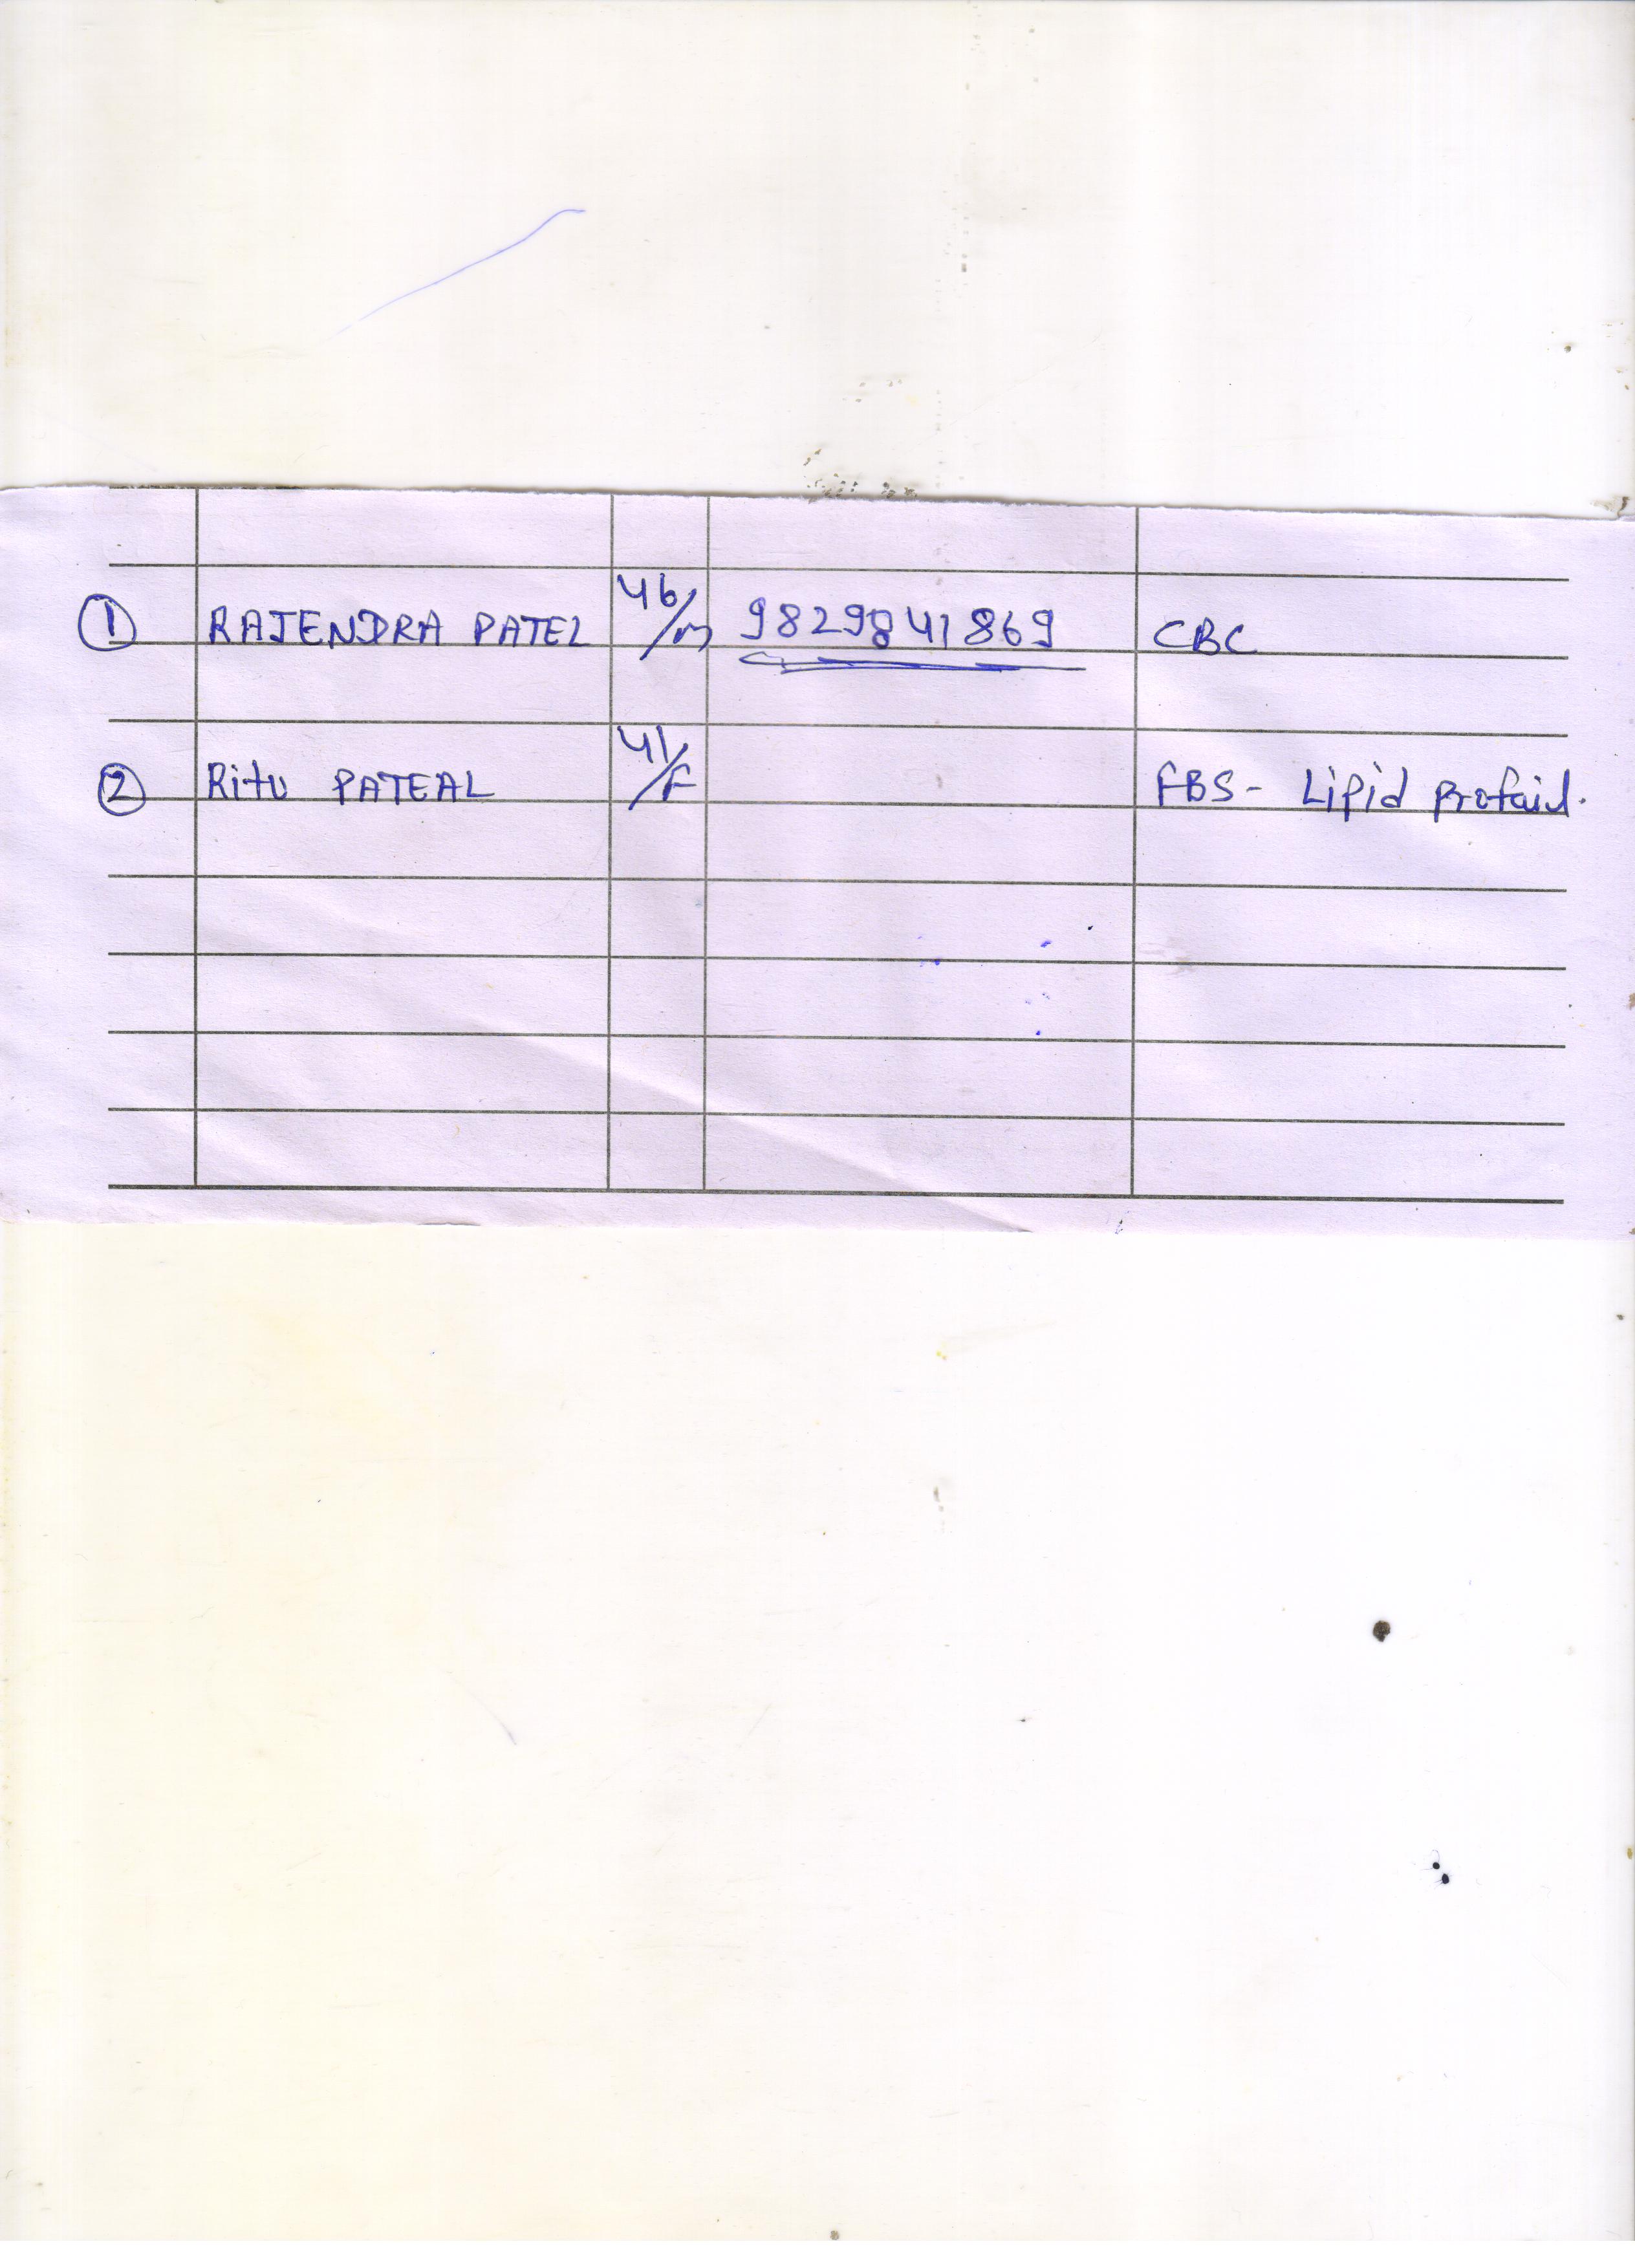 ① RAJENDRA PATEL 46/m 9829841869 CBC
② Ritu PATEAL 41/F FBS - Lipid profail.